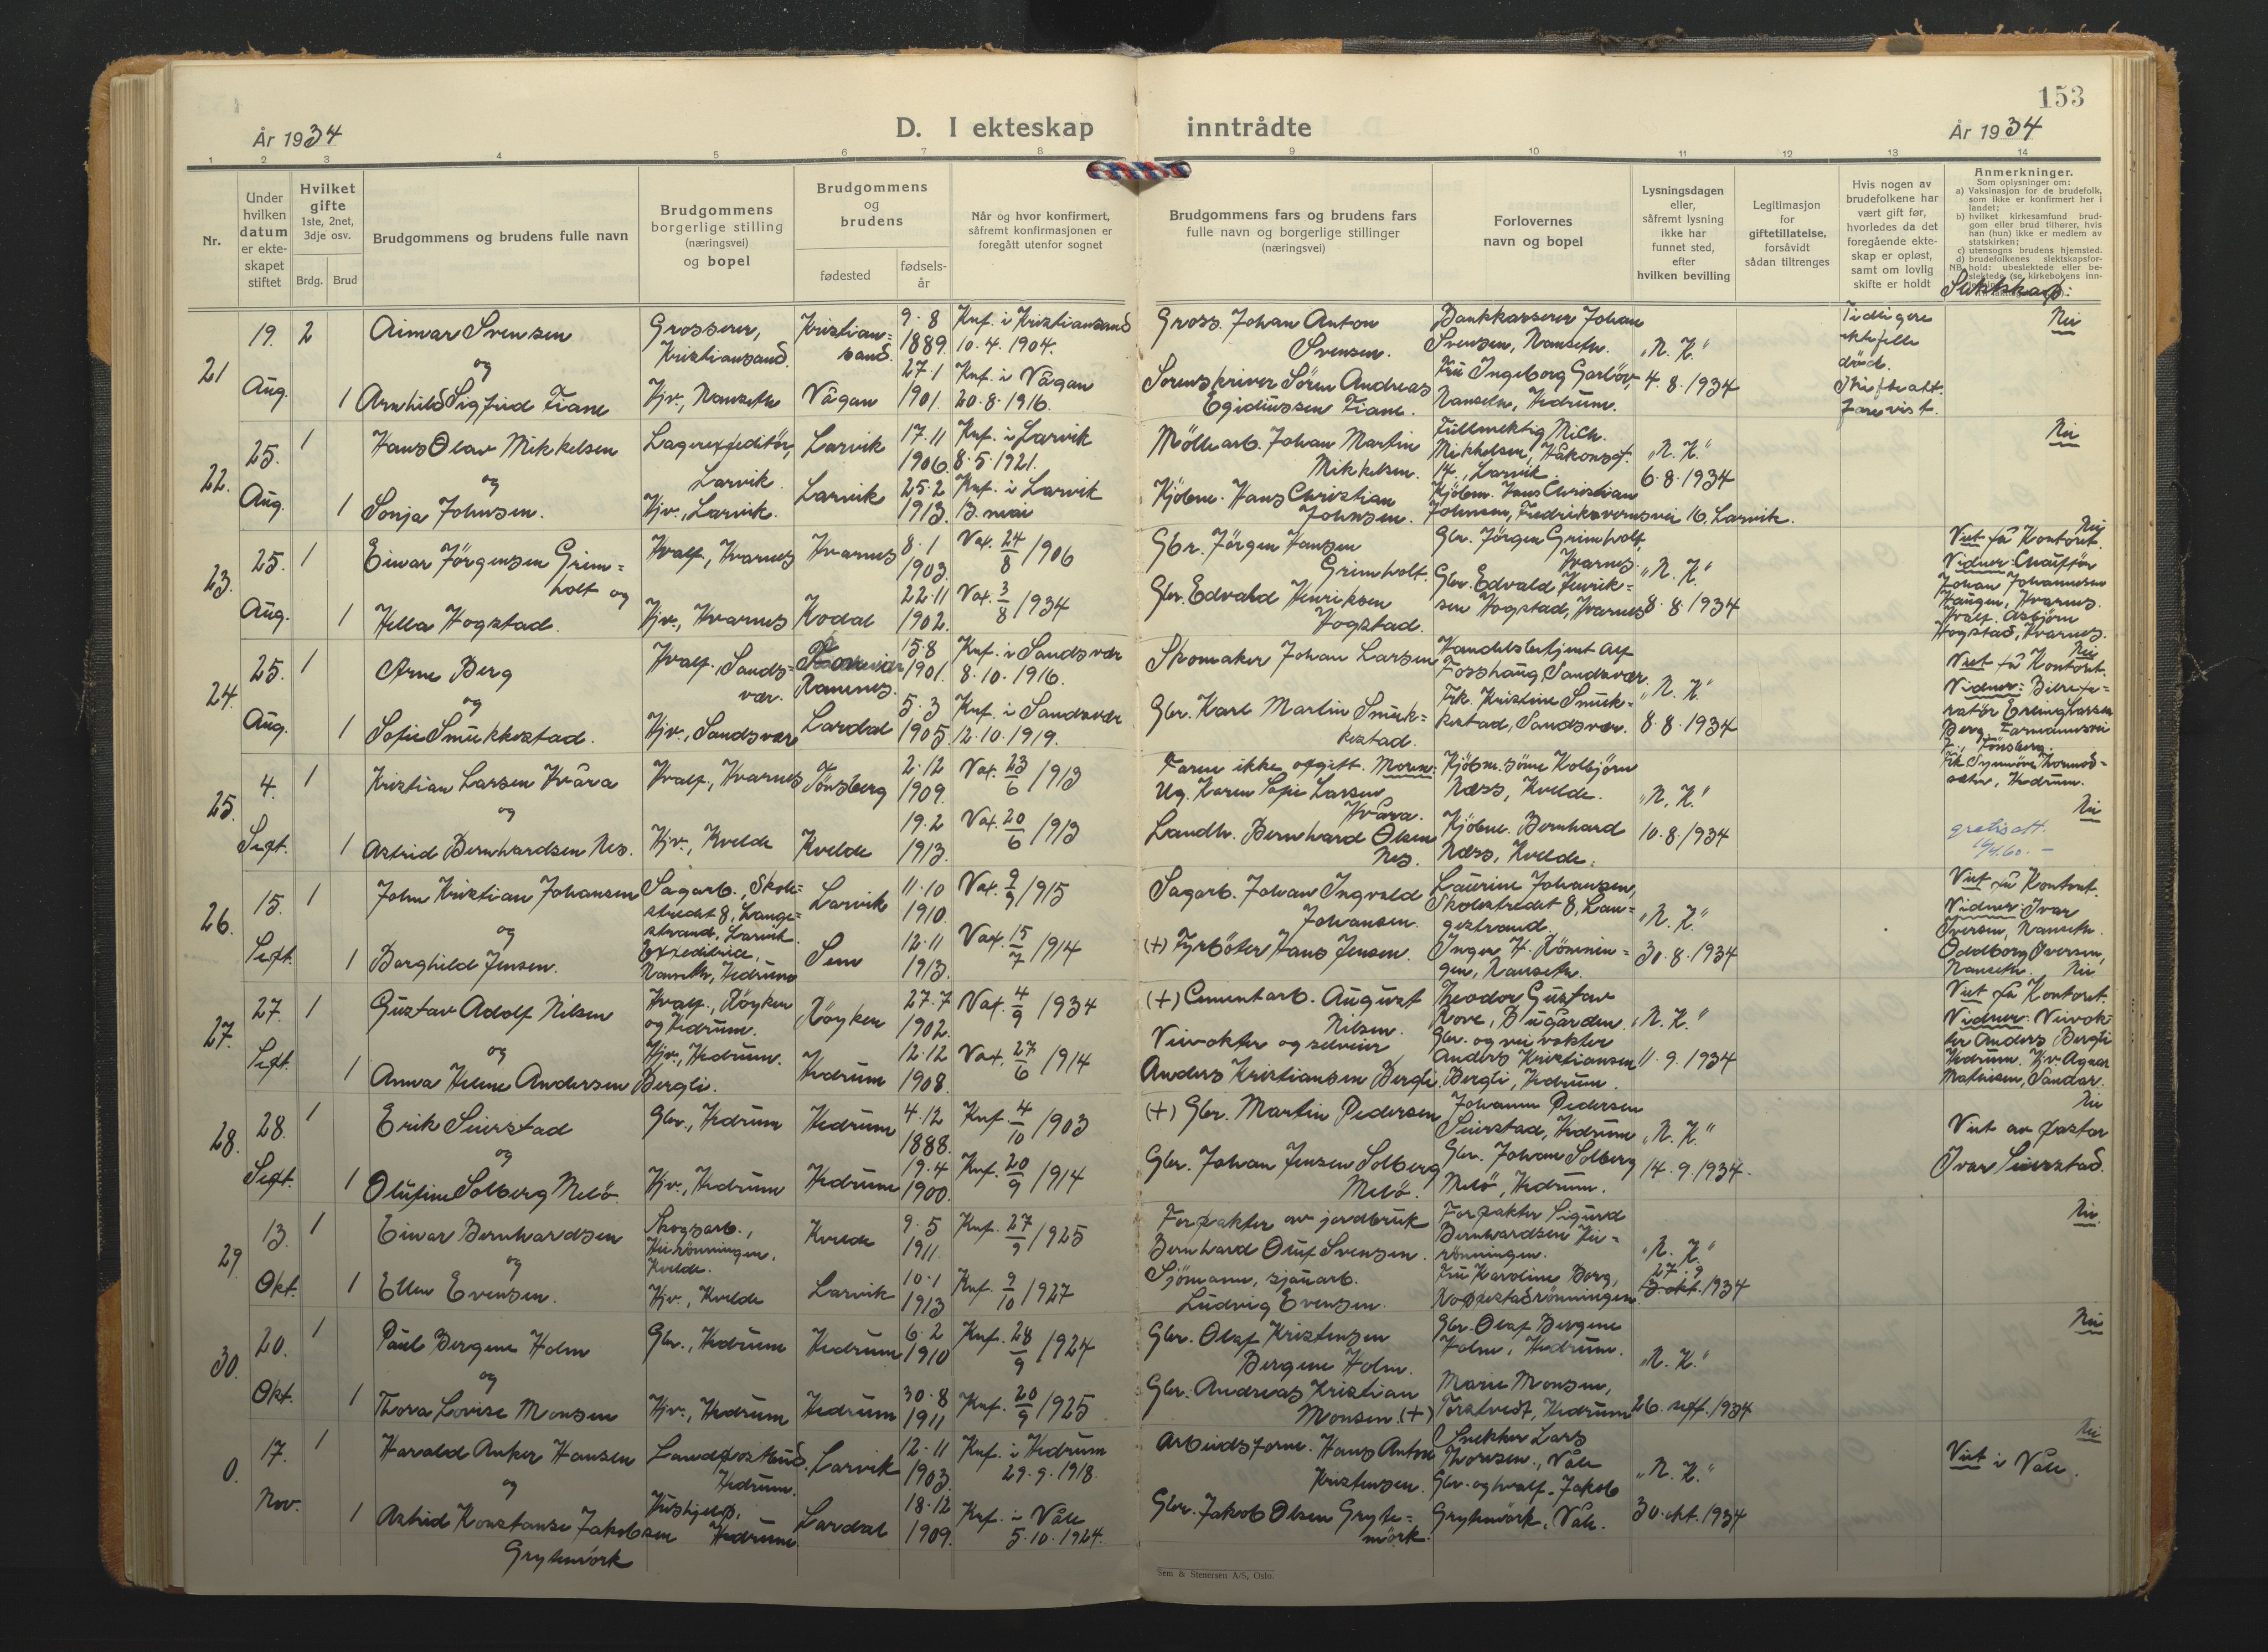 153
År 1934
D. I ekteskap inntrådte
År 1934
1 2 3 4 5 6 7 8 9 10 11 12 13 14
Nr.
Under
hvilken
datum
er ekte-
skapet
stiftet
Hvilket
gifte
1ste, 2net,
3dje osv.
Brdg. Brud
Brudgommens og brudens fulle navn
Brudgommens
borgerlige stilling
(næringsvei)
og bopel
Brudgommens
og
brudens
fødested
fødsels-
år
Når og hvor konfirmert,
såfremt konfirmasjonen er
foregått utenfor sognet
Brudgommens fars og brudens fars
fulle navn og borgerlige stillinger
(næringsvei)
Forlovernes
navn og bopel
Lysningsdagen
eller,
såfremt lysning
ikke har
funnet sted,
efter
hvilken bevilling
Legitimasjon
for
giftetillatelse,
forsåvidt
sådan tiltrenges
Hvis nogen av
brudefolkene har
vært gift før,
hvorledes da det
foregående ekte-
skap er opløst,
samt om lovlig
skifte er holdt
Anmerkninger.
Som oplysninger om:
a) Vaksinasjon for de brudefolk,
som ikke er konfirmert her i
landet;
b) hvilket kirkesamfund brud-
gom eller brud tilhører, hvis
han (hun) ikke er medlem av
statskirken;
c) utensogns brudens hjemsted.
d) brudefolkenes slektskapsfor-
NB. hold: ubeslektede eller be-
slektede (se kirkebokens inn-
Slektskap:
21
19. Aug.
2
1
Aimar Svensen
og
Arnhild Sigfrid Fiane
Grosserer,
Kristiansand.
Hjv., Nanseth
Kristian=
sand.
Vågan
9.8
1889.
27.1
1901.
Knf. i Kristiansand
10.4.1904.
Knf. i Vågan
20.8.1916.
Gross. Johan Anton
Svensen.
Sorenskriver Sören Andreas
Egidiussen Fiane.
Bankkasserer Johan
Svensen, Nanseth.
Fru Ingeborg Garlöv,
Nanseth, Hedrum.
"N. K."
4.8.1934
Tidligere
ektefelle
död.
Skifteatt.
forevist.
Nei
22.
25. Aug.
1
1
Hans Olav Mikkelsen
og
Sonja Johnsen.
Lagerexpeditör,
Larvik.
Hjv., Larvik.
Larvik
Larvik
17.11
1906.
25.2
1913.
Knf. i Larvik
8.5.1921.
Knf. i Larvik
13. mai
Möllearb. Johan Martin
Mikkelsen.
Kjöbm. Hans Christian
Johnsen.
Fullmektig Mich.
Mikkelsen, Håkonsgt.
14, Larvik.
Kjöbm. Hans Christian
Johnsen, Fredriksvernsvei 16, Larvik.
"N. K."
6.8.1934
Nei
23.
25. Aug.
1
1
Einar Jörgensen Grim=
holt og
Hella Hogstad.
Hvalf., Hvarnes
Hjv., Hvarnes
Hvarnes
Kodal
8.1
1903.
22.11
1902.
Vax. 24/8 1906
Vax. 3/8 1934
Gbr. Jörgen Hansen
Grimholt.
Gbr. Edvald Henriksen
Hogstad.
Gbr. Jörgen Grimholt,
Hvarnes.
Gbr. Edvald Henrik=
sen Hogstad, Hvarnes
"N. K."
8.8.1934
Nei
Viet på Kontoret.
Vidner: Chaufför
Johan Johannesen
Haugen, Hvarnes.
Hvalf. Asbjörn
Hogstad, Hvarnes.
24.
25. Aug.
1
1
Arne Berg
og
Sofie Smukkestad.
Hvalf., Sands=
vær.
Hjv., Sandsvær
Ramnes.
Lardal
15.8
1901.
5.3
1905.
Knf. i Sandsvær
8.10.1916.
Knf. i Sandsvær
12.10.1919.
Skomaker Johan Larsen
Gbr. Karl Martin Smuk=
kestad.
Handelsbetjent Alf
Fosshaug, Sandsvær.
Frk. Kristine Smuk=
kestad, Sandsvær.
"N. K."
8.8.1934
Nei
Viet på Kontoret.
Vidner: Bilrepa=
ratör Erling Larsen
Berg, Farmannsvei
2, Tönsberg.
Frk. Synnöve Tormod=
sæter, Hedrum.
25.
4. Sept.
1
1
Kristian Larsen Kvåra
og
Astrid Bernhardsen Nes.
Hvalf., Hvarnes
Hjv., Kvelde
Tönsberg
Kvelde
2.12
1909.
19.2
1913.
Vax. 23/6 1913
Vax. 20/6 1913
Faren ikke opgitt. Moren:
Ug. Karen Sofie Larsen
Kvåra.
Landh. Bernhard Olsen
Nes.
Kjöbm. sönn Kolbjörn
Næss, Kvelde.
Kjöbm. Bernhard
Næss, Kvelde.
"N. K."
10.8.1934
Nei
gratis att.
26.
15. Sept.
1
1
John Kristian Johansen
og
Borghild Jensen.
Sagarb., Skole=
stredet 8, Lange=
strand, Larvik.
Expeditrice,
Nanseth, Hedrum
Larvik
Sem
11.10
1910.
12.11
1913.
Vax. 9/9 1915
Vax. 15/7 1914
Sagarb. Johan Ingvald
Johansen.
(+) Fyrböter Hans Jensen.
Laurine Johansen,
Skolestredet 8, Lan=
gestrand.
Inger H. Rönnin=
gen, Nanseth.
"N. K."
30.8.1934
Viet på Kontoret.
Vidner: Ivar
Iversen, Nanseth.
Oddborg Iversen,
Nanseth. Nei
27.
27. Sept.
1
1
Gustav Adolf Nilsen
og
Anna Helene Andersen Bergli.
Hvalf., Röyken
og Hedrum.
Hjv., Hedrum.
Röyken
Hedrum
27.7
1902.
12.12
1908.
Vax. 4/9 1934
Vax. 27/6 1914
(+) Cementarb. August
Nilsen.
Veivokter og selveier
Anders Kristiansen Bergli.
Theodor Gustav
Rove, Bugården.
Gbr. og veivokter
Anders Kristiansen
Bergli, Hedrum.
"N. K."
11.9.1934
Viet på Kontoret.
Vidner: Veivok=
ter Anders Bergli
Hedrum. Hjv. Agnes
Mathisen, Sandar.
28.
28. Sept.
1
1
Erik Seierstad
og
Olufine Solberg Melö
Gbr., Hedrum
Hjv., Hedrum
Hedrum
Hedrum
4.12
1888.
19.4
1900.
Knf. 4/10 1903
Knf. 20/9 1914
(+) Gbr. Martin Pedersen
Gbr. Johan Jensen Solberg
Melö.
Johann Pedersen
Seierstad, Hedrum
Gbr. Johan Solberg
Melö, Hedrum.
"N. K."
14.9.1934.
Nei
Viet av pastor
Ivar Seierstad.
29.
13. Okt.
1
1
Einar Bernhardsen
og
Ellen Evensen.
Skogsarb.,
Heirönningen,
Kvelde.
Hjv., Kvelde
Kvelde
Larvik
9.5
1911.
10.1
1913
Knf. 27/9 1925
Knf. 9/10 1927
Forpakter av jordbruk
Bernhard Oluf Svensen.
Sjömann, sjauarb.
Ludvig Evensen.
Forpakter Sigurd
Bernhardsen Hei=
rönningen.
Fru Karoline Borg,
Kopestadrönningen
"N. K."
27.9
3. okt. 1934
Nei
30.
20. Okt.
1
1
Paul Bergene Holm
og
Thora Lovise Monsen
Gbr., Hedrum
Hjv., Hedrum
Hedrum
Hedrum
6.2
1910
30.8
1911
Knf. 28/9 1924
Knf. 20/9 1925
Gbr. Olaf Kristensen
Bergene Holm.
Gbr. Andreas Kristian
Monsen. (+)
Gbr. Olaf Bergene
Holm, Hedrum.
Marie Monsen,
Torstvedt, Hedrum
"N. K."
26. sept. 1934
Nei
0.
17. Nov.
1
1
Harald Anker Hansen
og
Astrid Konstanse Jakobsen
Grytenörk
Landpostbud.
Hedrum.
Hushjelp.
Hedrum.
Larvik
Lardal
12.11
1903.
18.12
1909.
Knf. i Hedrum
29.9.1918.
Knf. i Våle
5.10.1924.
Arbeidsform. Hans Anton
Kristensen.
Gbr. Jakob Olsen Gryte=
nörk.
Snekker Lars
Thoresen, Våle
Gbr. og hvalf. Jakob
Grytenörk, Våle.
"N. K."
30. okt. 1934
Nei
Viet i Våle.
Sem & Stenersen A/S, Oslo.